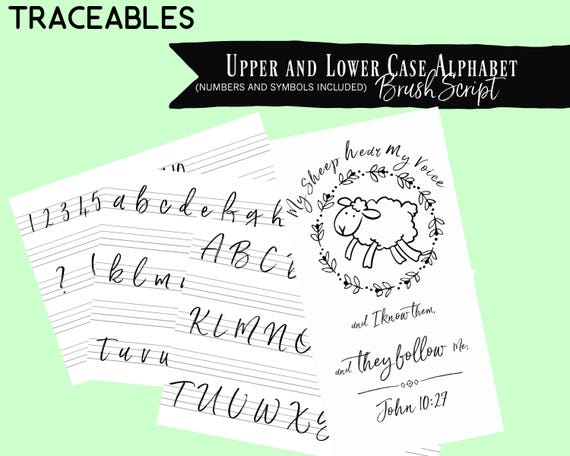 TRACEABLES
UPPER AND LOWER CASE ALPHABET
(NUMBERS AND SYMBOLS INCLUDED) BrushScript
1 2 3 4 5
?
a b c d e f g h
k l m
T u v u
A B C
K L M N O
T U V W X
My Sheep hear My Voice
and I know them,
and they follow Me.
John 10:27